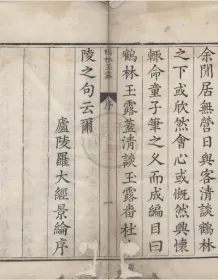 余閒居無營日與客清談鶴林
之下或欣然會心或慨然興懷
輙命童子筆之久而成編目曰
鶴林玉露蓋清談玉露蕃杜
鶴林玉露
序
一
陵之句云爾
廬陵羅大經景綸序